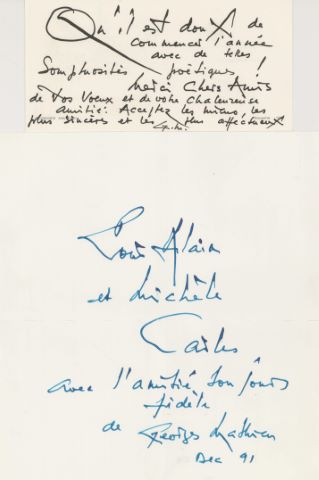 Qu'il est doux de
commencer l'année
avec de telles
somptuosités poétiques !
Merci Chers Amis
de vos voeux et de votre chaleureuse
amitié. Acceptez les miens, les
plus sincères et les plus affectueux
Pour Alain
et Michèle
avec l'amitié toujours
fidèle
de Georges Mathieu
Dec 91